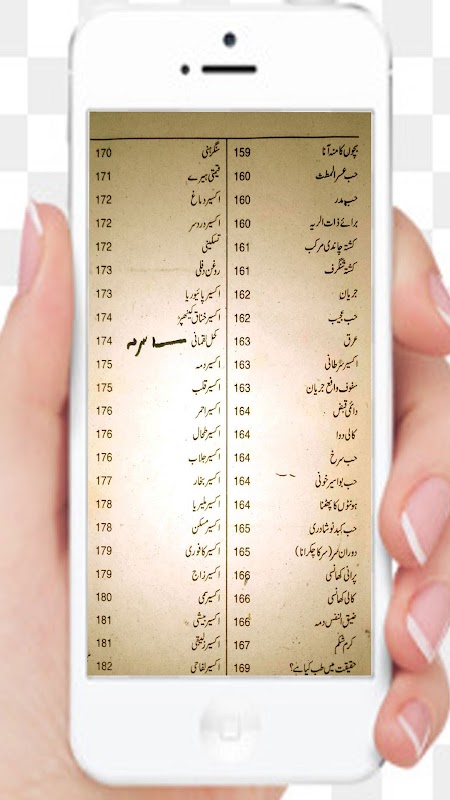 بچوں کا منہ آنا 159
حب عسر الطمث 160
حب مدر 160
برائے ذات الریہ 160
کشتہ چاندی مرکب 161
کشتہ شنگرف 161
جریان 162
حب عجیب 162
عرق 163
اکسیر سرطانی 163
سفوف دافع جریان 163
دائمی قبض 164
کالی دوا 164
حب سرخ 164
حب بواسیر خونی 164
ہونٹوں کا پھٹنا 164
حب کبد نوشادری 165
دوران سر (سر کا چکرانا) 165
پرانی کھانسی 166
کالی کھانسی 166
ضیق النفس دمہ 166
کرم شکم 167
حقیقت میں طب کیا ہے؟ 169
سنگرہنی 170
قیمتی ہیرے 171
اکسیر دماغ 172
اکسیر درد سر 172
تسکینی 172
روغن دفلی 173
اکسیر پائیوریا 173
اکسیر خناق 174
کحل لقمانی 174
اکسیر دمہ 175
اکسیر قلب 175
اکسیر احمر 176
اکسیر طحال 176
اکسیر جلاب 176
اکسیر بخار 177
اکسیر ملیریا 178
اکسیر مسکن 178
اکسیر کافوری 179
اکسیر زاج 179
اکسیر سمی 180
اکسیر بیشی 181
اکسیر زلیقی 181
اکسیر لفاحی 182